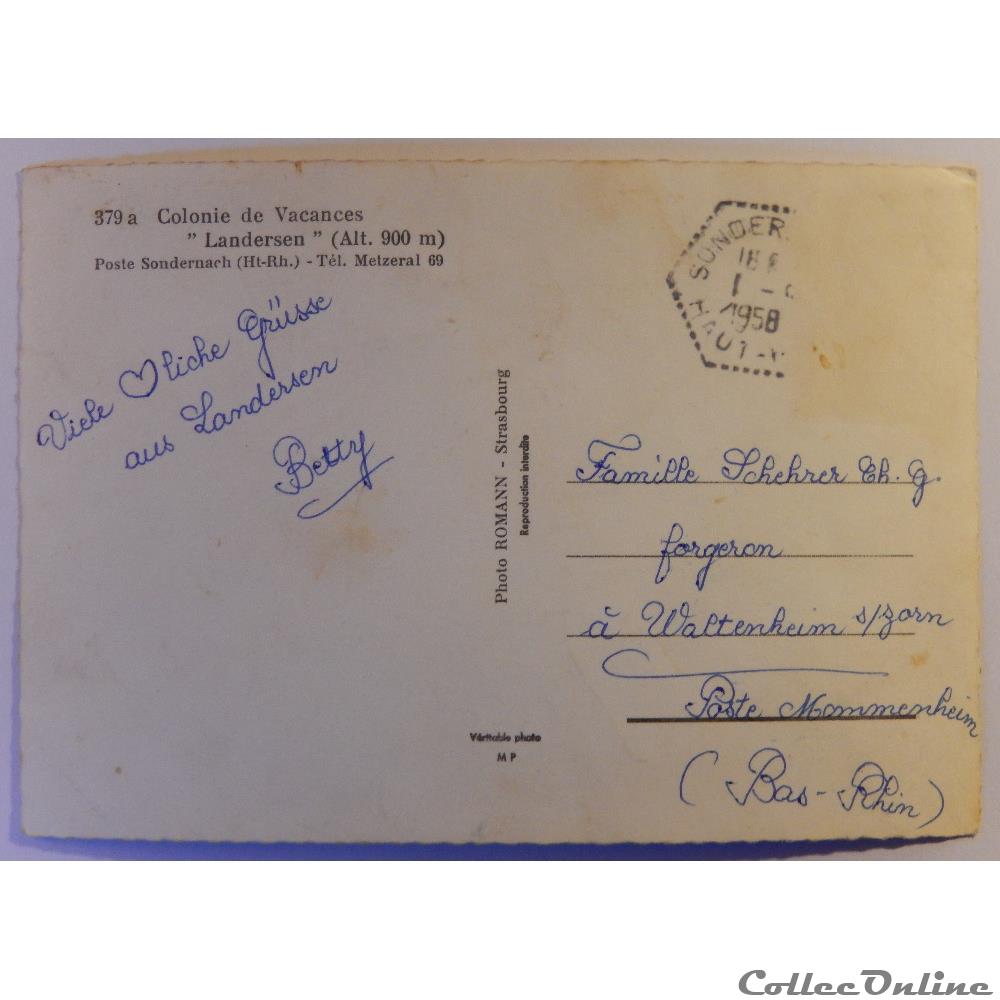 379 a Colonie de Vacances
" Landersen " (Alt. 900 m)
Poste Sondernach (Ht-Rh.) - Tél. Metzeral 69
Viele ♡liche Grüsse
aus Landersen
Betty
Photo ROMANN - Strasbourg
Reproduction interdite
Véritable photo
M P
SONDER
18
1 -
1958
HAUT-
Famille Schehrer Ch. G.
forgeron
à Waltenheim s/zorn
Poste Mommenheim
(Bas-Rhin)
CollecOnline